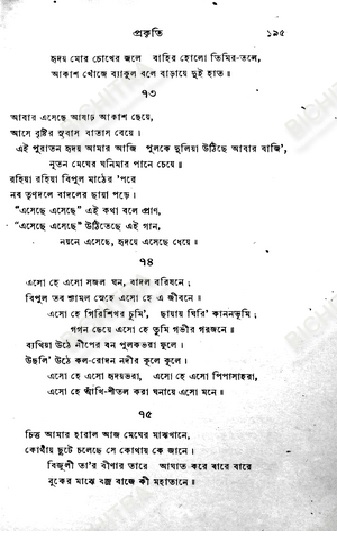 প্রকৃতি ১৯৫
হৃদয় মোর চোখের জলে বাহির হোলো তিমির-তলে,
আকাশ খোঁজে ব্যাকুল বলে বাড়ায়ে দুই হাত॥
৭৩
আবার এসেছে আষাঢ় আকাশ ছেয়ে,
আসে বৃষ্টির সুবাস বাতাস বেয়ে।
এই পুরাতন হৃদয় আমার আজি পুলকে দুলিয়া উঠিছে আবার বাজি',
নূতন মেঘের ঘনিমার পানে চেয়ে॥
রহিয়া রহিয়া বিপুল মাঠের 'পরে
নব তৃণদলে বাদলের ছায়া পড়ে।
"এসেছে এসেছে" এই কথা বলে প্রাণ,
"এসেছে এসেছে" উঠিতেছে এই গান,
নয়নে এসেছে, হৃদয়ে এসেছে ধেয়ে॥
৭৪
এসো হে এসো সজল ঘন, বাদল বরিষনে;
বিপুল তব শ্যামল স্নেহে এসো হে এ জীবনে॥
এসো হে গিরিশিখর চুমি', ছায়ায় ঘিরি' কাননভূমি;
গগন ছেয়ে এসো হে তুমি গভীর গরজনে॥
ব্যথিয়া উঠে নীপের বন পুলকভরা ফুলে।
উছলি' উঠে কল-রোদন নদীর কূলে কূলে।
এসো হে এসো হৃদয়ভরা, এসো হে এসো পিপাসাহরা,
এসো হে আঁখি-শীতল করা ঘনায়ে এসো মনে॥
৭৫
চিত্ত আমার হারাল আজ মেঘের মাঝখানে,
কোথায় ছুটে চলেছে সে কোথায় কে জানে।
বিজুলী তা'র বীণার তারে আঘাত করে বারে বারে
বুকের মাঝে বজ্র বাজে কী মহাতানে॥